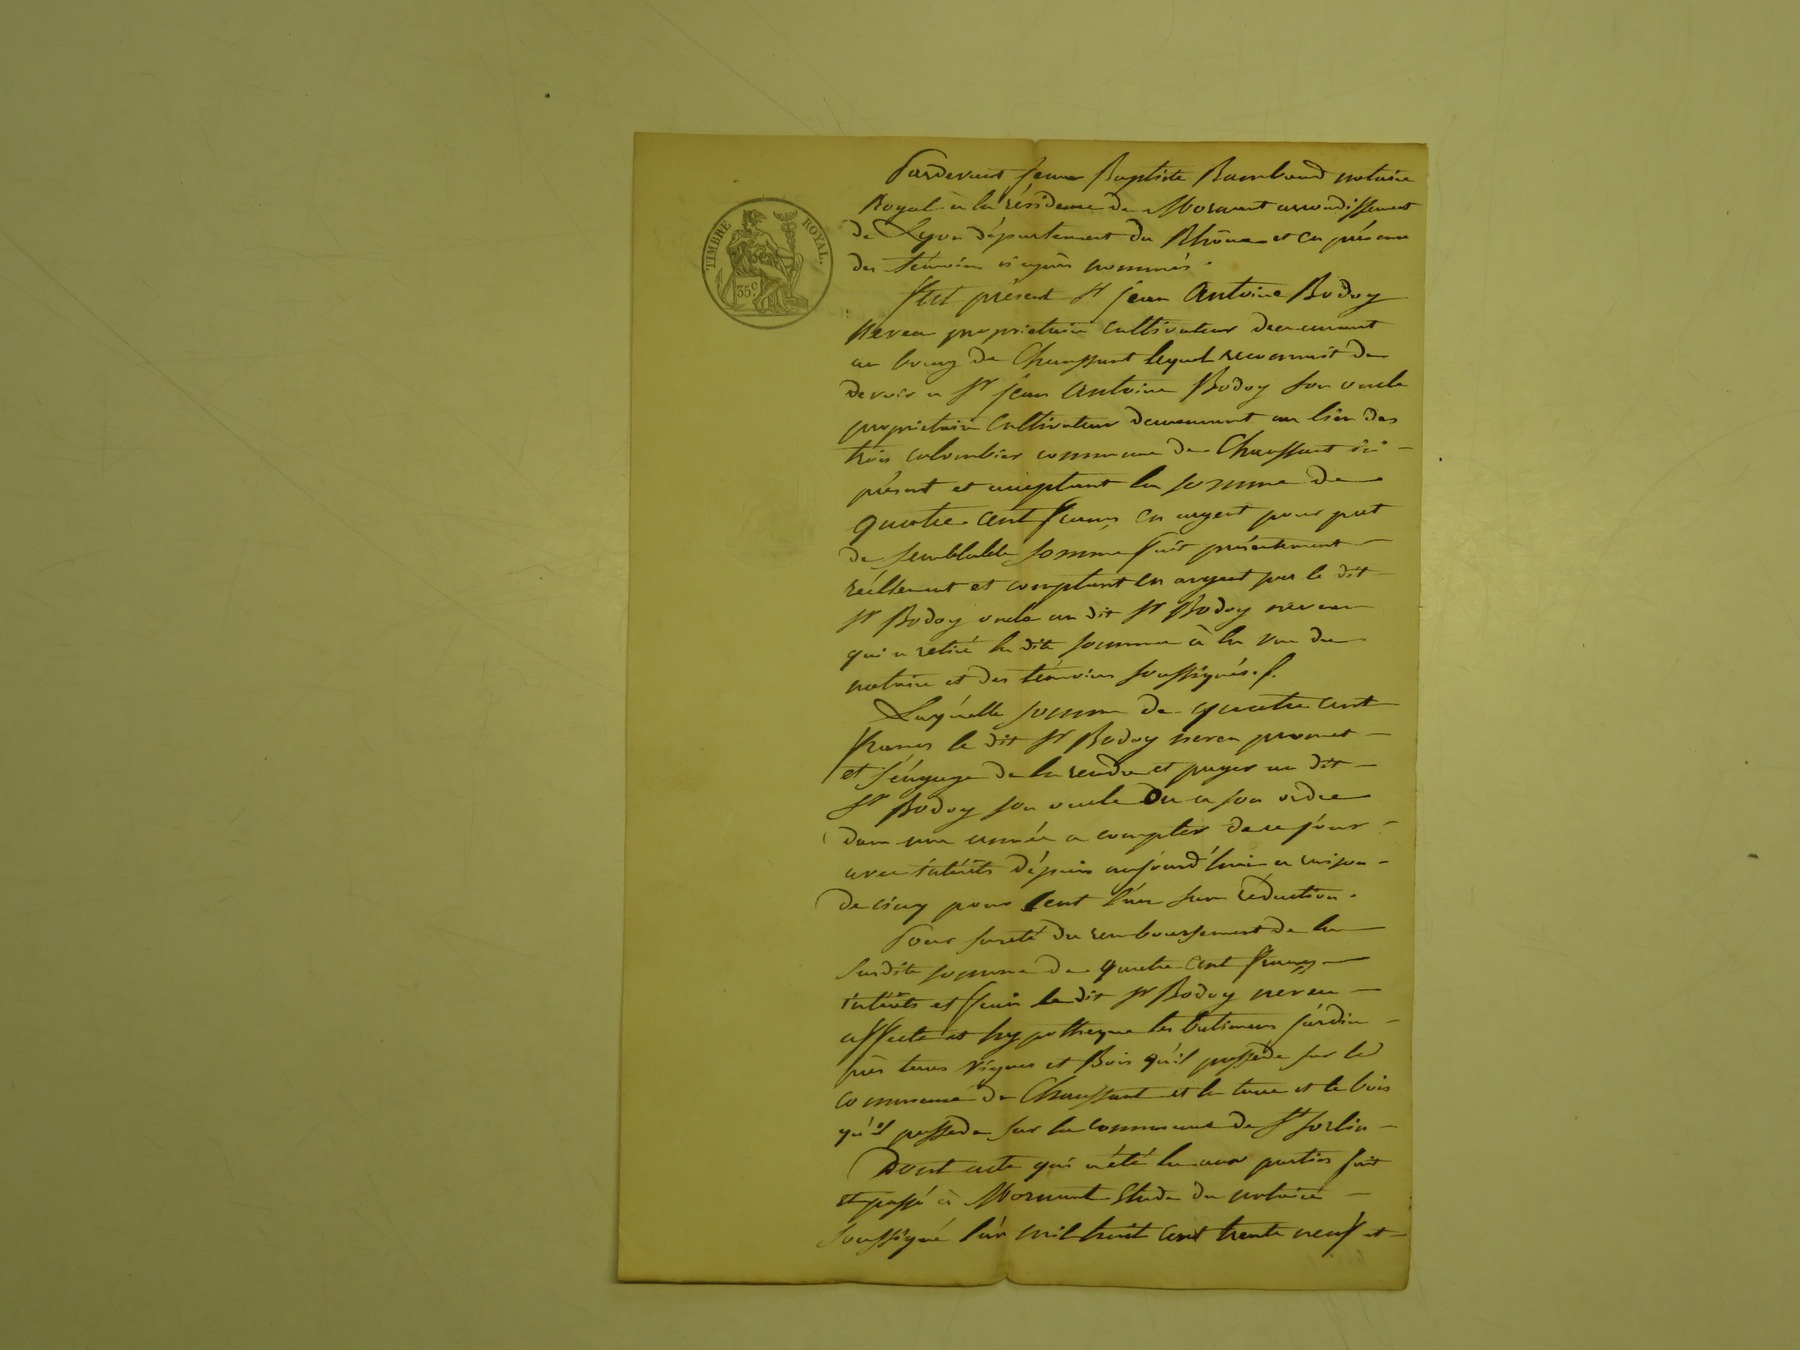 TIMBRE ROYAL.
35c.
Pardevant Jean Baptiste Rambaud notaire
Royal à la résidence de Mornant arrondissement
de Lyon département du Rhône et en présence
des témoins ci après nommés.
Fut présent Sr jean Antoine Bodoy
neveu propriétaire cultivateur demeurant
au bourg de Chaussant lequel reconnait de
devoir a Sr jean Antoine Bodoy son oncle
propriétaire Cultivateur demeurant au lieu des
trois colombier commune de Chaussant ici
présent et acceptant la somme de
quatre cent francs en argent pour prêt
de semblable somme fait présentement
réellement et comptant en argent par le dit
Sr Bodoy oncle au dit Sr Bodoy neveu
qui a retiré la dite somme à la vue du
notaire et des témoins soussignés.
Laquelle somme de quatre cent
francs le dit Sr Bodoy neveu promet
et s'engage de la rendre et payer au dit
Sr Bodoy son oncle ou a son ordre
dans une année a compter de ce jour
avec intérêts dépuis aujourd'hui a raison
de cinq pour cent l'an sans réduction.
Pour sureté du remboursement de la
susdite somme de quatre cent francs
intérêts et frais le dit Sr Bodoy neveu
affecte et hypotheque les batimens jardin
prés terres vignes et Bois qu'il possède sur la
commune de Chaussant et la terre et le bois
qu'il possede sur la commune de St Sorlin
Dont acte qui a été lu aux parties fait
et passé à Mornant Etude du notaire
soussigné l'an mil huit cent trente neuf et